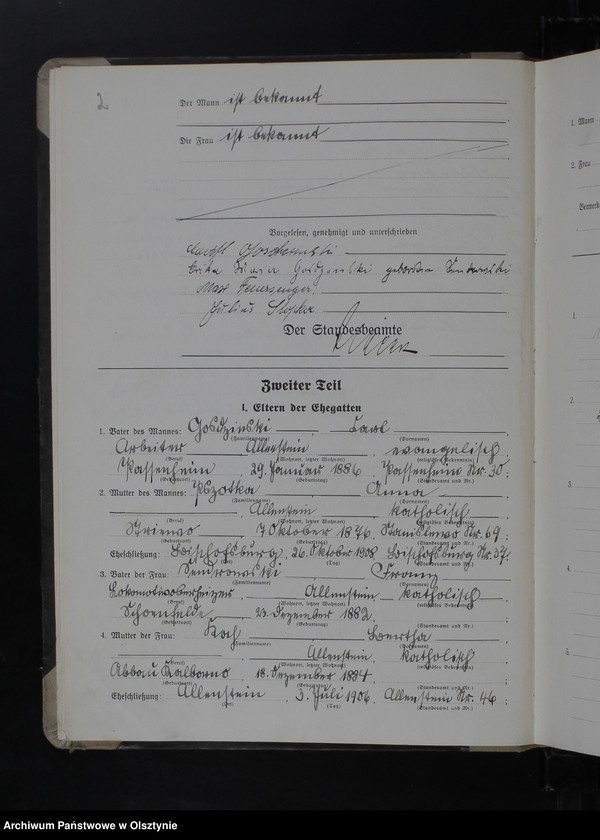 2
Der Mann ist bekannt
Die Frau ist bekannt
Vorgelesen, genehmigt und unterschrieben
geborene
Max Feuersenger
Julius
Der Standesbeamte
Zweiter Teil
1. Eltern der Ehegatten
1. Vater des Mannes: Gosdzinski Karl
(Familienname) (Vornamen)
Arbeiter Allenstein, evangelisch
(Beruf) (Wohnort, letzter Wohnort) (religiöses Bekenntnis)
Passenheim 29. Januar 1886 Passenheim Nr. 30;
(Geburtsort) (Geburtstag) (Standesamt und Nr.)
2. Mutter des Mannes: Anna
(Familienname) (Vornamen)
Allenstein katholisch
(Beruf) (Wohnort, letzter Wohnort) (religiöses Bekenntnis)
Striewo 7. Oktober 1876, Stanislewo Nr. 69;
(Geburtsort) (Geburtstag) (Standesamt und Nr.)
Eheschließung: Bischofsburg, 26. Oktober 1908 Bischofsburg Nr. 37.
(Ort) (Tag) (Standesamt und Nr.)
3. Vater der Frau: Sendrowski Franz
(Familienname) (Vornamen)
Lokomotivoberheizer, Allenstein katholisch
(Beruf) (Wohnort, letzter Wohnort) (religiöses Bekenntnis)
Schoenfelde 23. Dezember 1882.
(Geburtsort) (Geburtstag) (Standesamt und Nr.)
4. Mutter der Frau: Koch Bertha
(Familienname) (Vornamen)
Allenstein, katholisch
(Beruf) (Wohnort, letzter Wohnort) (religiöses Bekenntnis)
Abbau Kalborno, 18. Dezember 1884.
(Geburtsort) (Geburtstag) (Standesamt und Nr.)
Eheschließung: Allenstein 3. Juli 1906, Allenstein Nr. 46;
(Ort) (Tag) (Standesamt und Nr.)
1. Mann
2. Frau
1.
2.
3.
4.
5.
Archiwum Państwowe w Olsztynie